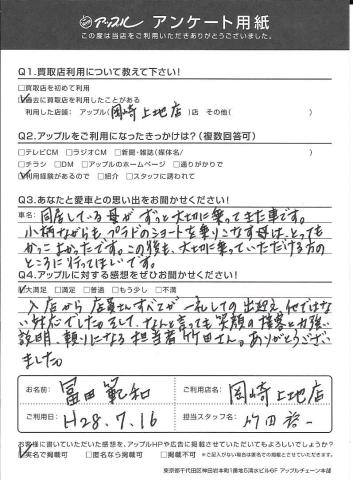 アップル アンケート用紙
この度は当店をご利用いただきありがとうございました。
Q1.買取店利用について教えて下さい!
□買取店を初めて利用
☑過去に買取店を利用したことがある
利用した店舗: アップル(岡崎上地店)店 その他( )
Q2.アップルをご利用になったきっかけは?(複数回答可)
□テレビCM □ラジオCM □新聞・雑誌(媒体名/ )
□チラシ □DM □アップルのホームページ □通りがかりで
☑利用経験があるので □紹介 □スタッフに誘われて
Q3.あなたと愛車との思い出をお聞かせください!
車名: 同居している母がずっと大切に乗ってきた車です。
小柄ながらも、プラドのショートを乗りこなす母は、とても
かっこよかったです。この後も、大切に乗っていただける方の
ところに行ってほしいです。
Q4.アップルに対する感想をぜひお聞かせください!
☑大満足 □満足 □普通 □もう少し □不満
入店から店員さんすべてが一礼しての出迎え、他ではな
い対応でした。そして、なんと言っても笑顔の接客と力強い
説明、頼りになる担当者竹田さん。ありがとうござい
ました。
お名前: 冨田範和 ご利用店名: 岡崎上地店
ご利用日: H28.7.16 担当スタッフ名: 竹田
お客様に書いていただいた感想を、アップルHPや広告に掲載させていただいてもよろしいでしょうか?
☑実名で掲載可 □匿名なら掲載可 □掲載不可 ※ご記入がない場合は匿名での掲載とさせていただきます。
東京都千代田区神田岩本町1番地5清水ビル6F アップルチェーン本部